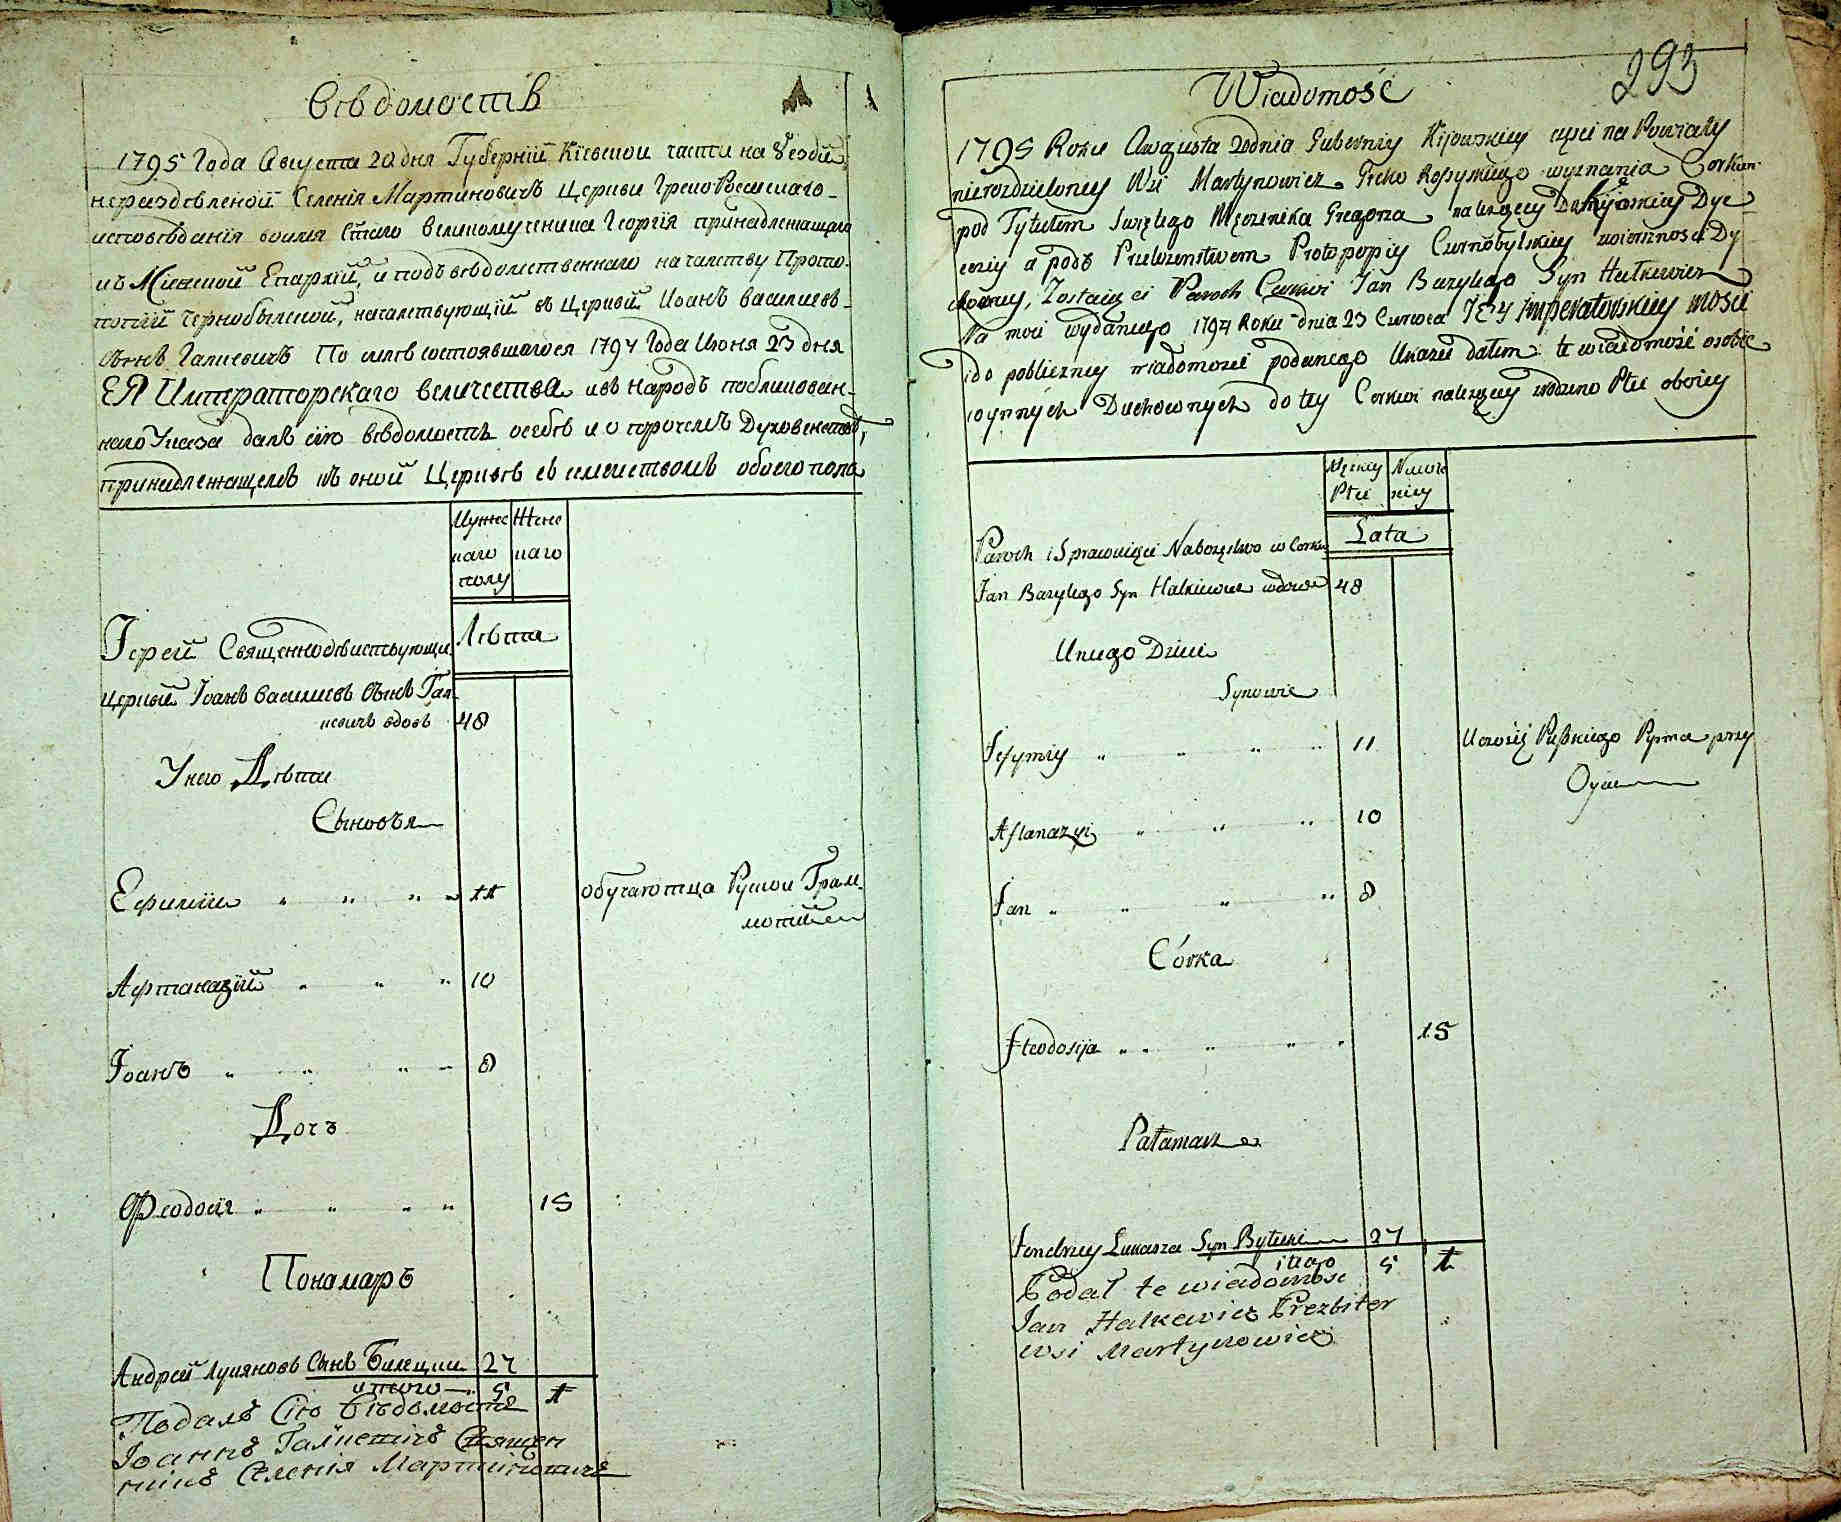 Вѣдомость
1795 Года Августа 20 дня Губернїи Кїевской части на Уезди
нераздѣленой Селенія Мартиновичъ Церкви Греко Россискаго
исповѣданія воимя Стаго Великомученика Георгія принадлежащаго
къ Кіевской Епархїи, и подъ вѣдомственнаго началству Прото-
попїи Чернобылской, началствующїй въ Церквѣ Иоанъ Василиевъ
Сынъ Галкевичъ По силѣ состоявшагося 1794 Года Июня 23 дня
ЕЯ Императорскаго величества и въ Народъ публикован-
наго Указа далъ сїю вѣдомость о себѣ и о прочемъ Духовенствѣ,
принадлежащемъ къ оной Церквѣ съ семействомъ обоего пола
Мужес Женс
каго каго
полу
Лѣта
Іерей Священнодѣиствующи
Церквѣ Іоанъ Василиевъ Сынъ Гал-
кевичъ вдовъ 48
У него Дѣти
Сыновъя
Ефимїи 11 обучаютца Руской Грам-
мотїи
Афтаназїй 10
Іоанъ 8
Дочъ
Феодосїя 15
Пономаръ
Андрей Лукяновъ Сынъ Билецки 27
итого 5 1
Подалъ Сїю Вѣдомость
Іоаннъ Галкевичъ Священ
никъ Селенія Мартиновичъ
293
Wiadomość
1795 Roku Augusta 20 dnia Guberniy Kijowskiey części na Powiaty
nierozdzieloney Wsi Martynowicz Greko Rossyiskiego wyznania Cerkwi
pod Tytułem Swiętego Męczenika Gregorza należącey Do Kijowskiey Dye-
ceziy a podъ Przełożenstwem Protopopiy Czernobylskiey zwierzchnosci Dy
chowney, Zostaiący Paroch Cerkwi Jan Bazylego Syn Halkiewicz
Na mocy wydanego 1794 Roku dnia 23 Czerwca JEY Imperatorskiey mości
i do publiczney wiadomości podanego Ukazu dałem te wiadomość o sobie
i o ynnych Duchownych do tey Cerkwi należących rodzeno Płci oboiey
Męskiey Niewie
Płci skiey
Lata
Paroch i Sprawuiący Nabożęstwo w Cerkwi
Jan Bazylego Syn Halkiewicz wdowiec 48
U niego Dzieci
Synowie
Jefymiy 11 Uczości Ruskiego Pysma przy
Oycu
Aftanazyi 10
Jan 8
Córka
Fteodosija 15
Pałamarz
Jendrzey Lukasza Syn Byłecki 27
itego 5 1
Podał te wiadomosc
Jan Halkewicz Prezbiter
wsi Martynowicz